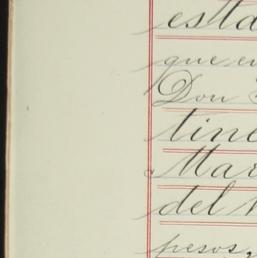 esta
que e
Don
tine
Mar
del
pesos,